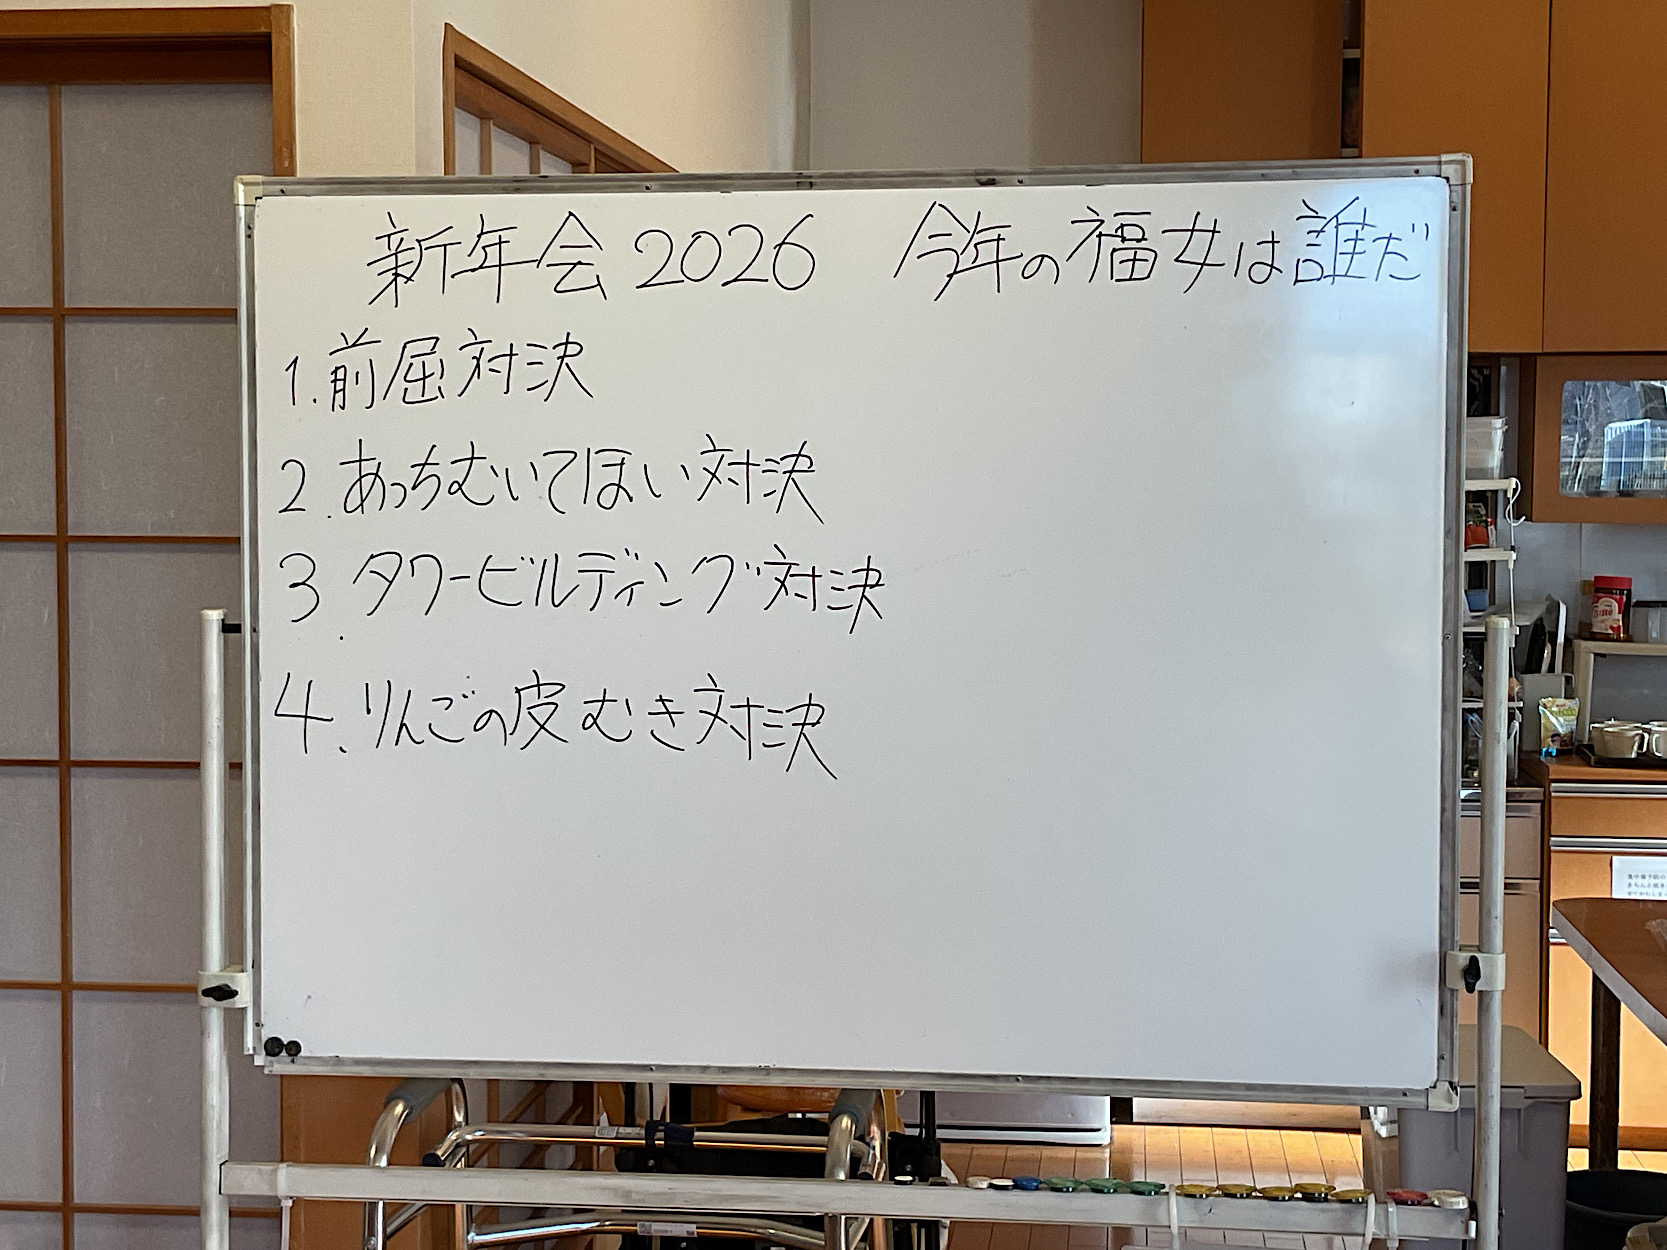 新年会2026 今年の福女は誰だ
1.前屈対決
2.あっちむいてほい対決
3.タワービルディング対決
4.りんごの皮むき対決